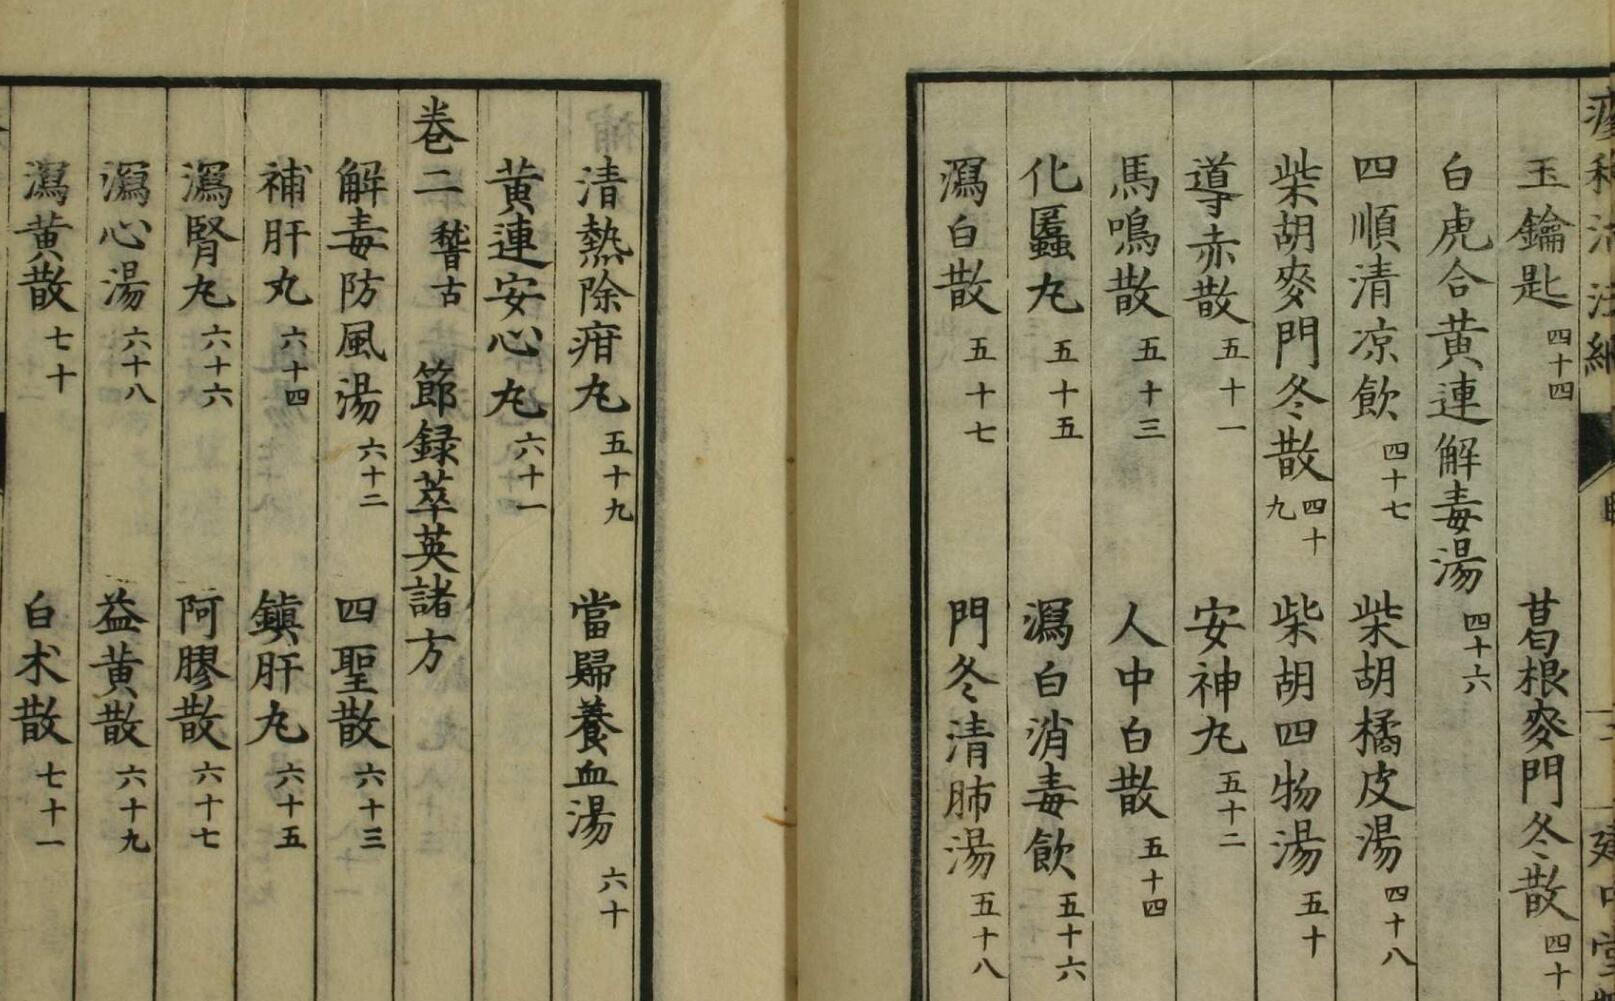 玉鑰匙 四十四 葛根麥門冬散 四十
白虎合黃連解毒湯 四十六
四順清凉飲 四十七 柴胡橘皮湯 四十八
柴胡麥門冬散 四十九 柴胡四物湯 五十
導赤散 五十一 安神丸 五十二
馬鳴散 五十三 人中白散 五十四
化䘌丸 五十五 瀉白消毒飲 五十六
瀉白散 五十七 門冬清肺湯 五十八
清熱除疳丸 五十九 當歸養血湯 六十
黃連安心丸 六十一
卷二 稽古 節録萃英諸方
解毒防風湯 六十二 四聖散 六十三
補肝丸 六十四 鎮肝丸 六十五
瀉腎丸 六十六 阿膠散 六十七
瀉心湯 六十八 益黃散 六十九
瀉黃散 七十 白术散 七十一